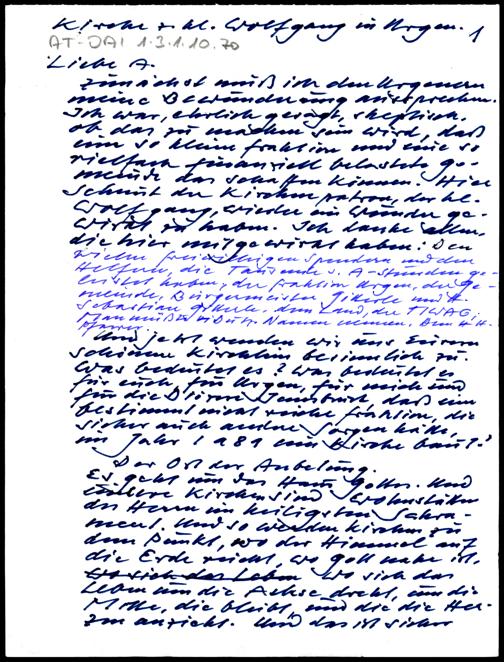 Kirche z. hl. Wolfgang in Urgen. 1
AT-DAI 1.3.1.10.70
Liebe A.
Zunächst muß ich den Urgenern
meine Bewunderung aussprechen.
Ich war, ehrlich gesagt, skeptisch,
ob das zu machen sein wird, daß
eine so kleine Fraktion und eine so
vielfach finanziell belastete Ge-
meinde das schaffen können. Hier
scheint der Kirchenpatron, der hl.
Wolfgang, wieder ein Wunder ge-
wirkt zu haben. Ich danke allen,
die hier mitgewirkt haben: Den
vielen freiwilligen Spendern und den
Helfern, die Tausende v. A-stunden ge-
leistet haben, der Fraktion Urgen, der Ge-
meinde, Bürgermeister und H.
Sebastian dem Land, der TIWAG,
Man müßte Namen nennen. Dem H.H.
Pfarrer.
Und jetzt wenden wir uns Eurem
schönen Kirchlein besinnlich zu.
Was bedeutet es? Was bedeutet es
für euch, für Urgen, für mich und
für die Diözese Innsbruck, daß eine
bestimmt nicht reiche Fraktion, die
sicher auch andere Sorgen hätte,
im Jahr 1981 eine Kirche baut?
Der Ort der Anbetung.
Es geht um das Haus Gottes. Und
unsere Kirchen sind Wohnstätten
des Herrn im heiligsten Sakra-
ment. Und so werden Kirchen zu
dem Punkt, wo der Himmel auf
die Erde reicht, wo Gott nahe ist,
wo sich das Leben wo sich das
Leben um die Achse dreht, um die
Mitte, die bleibt, und die die Her-
zen anzieht. Und das ist sicher